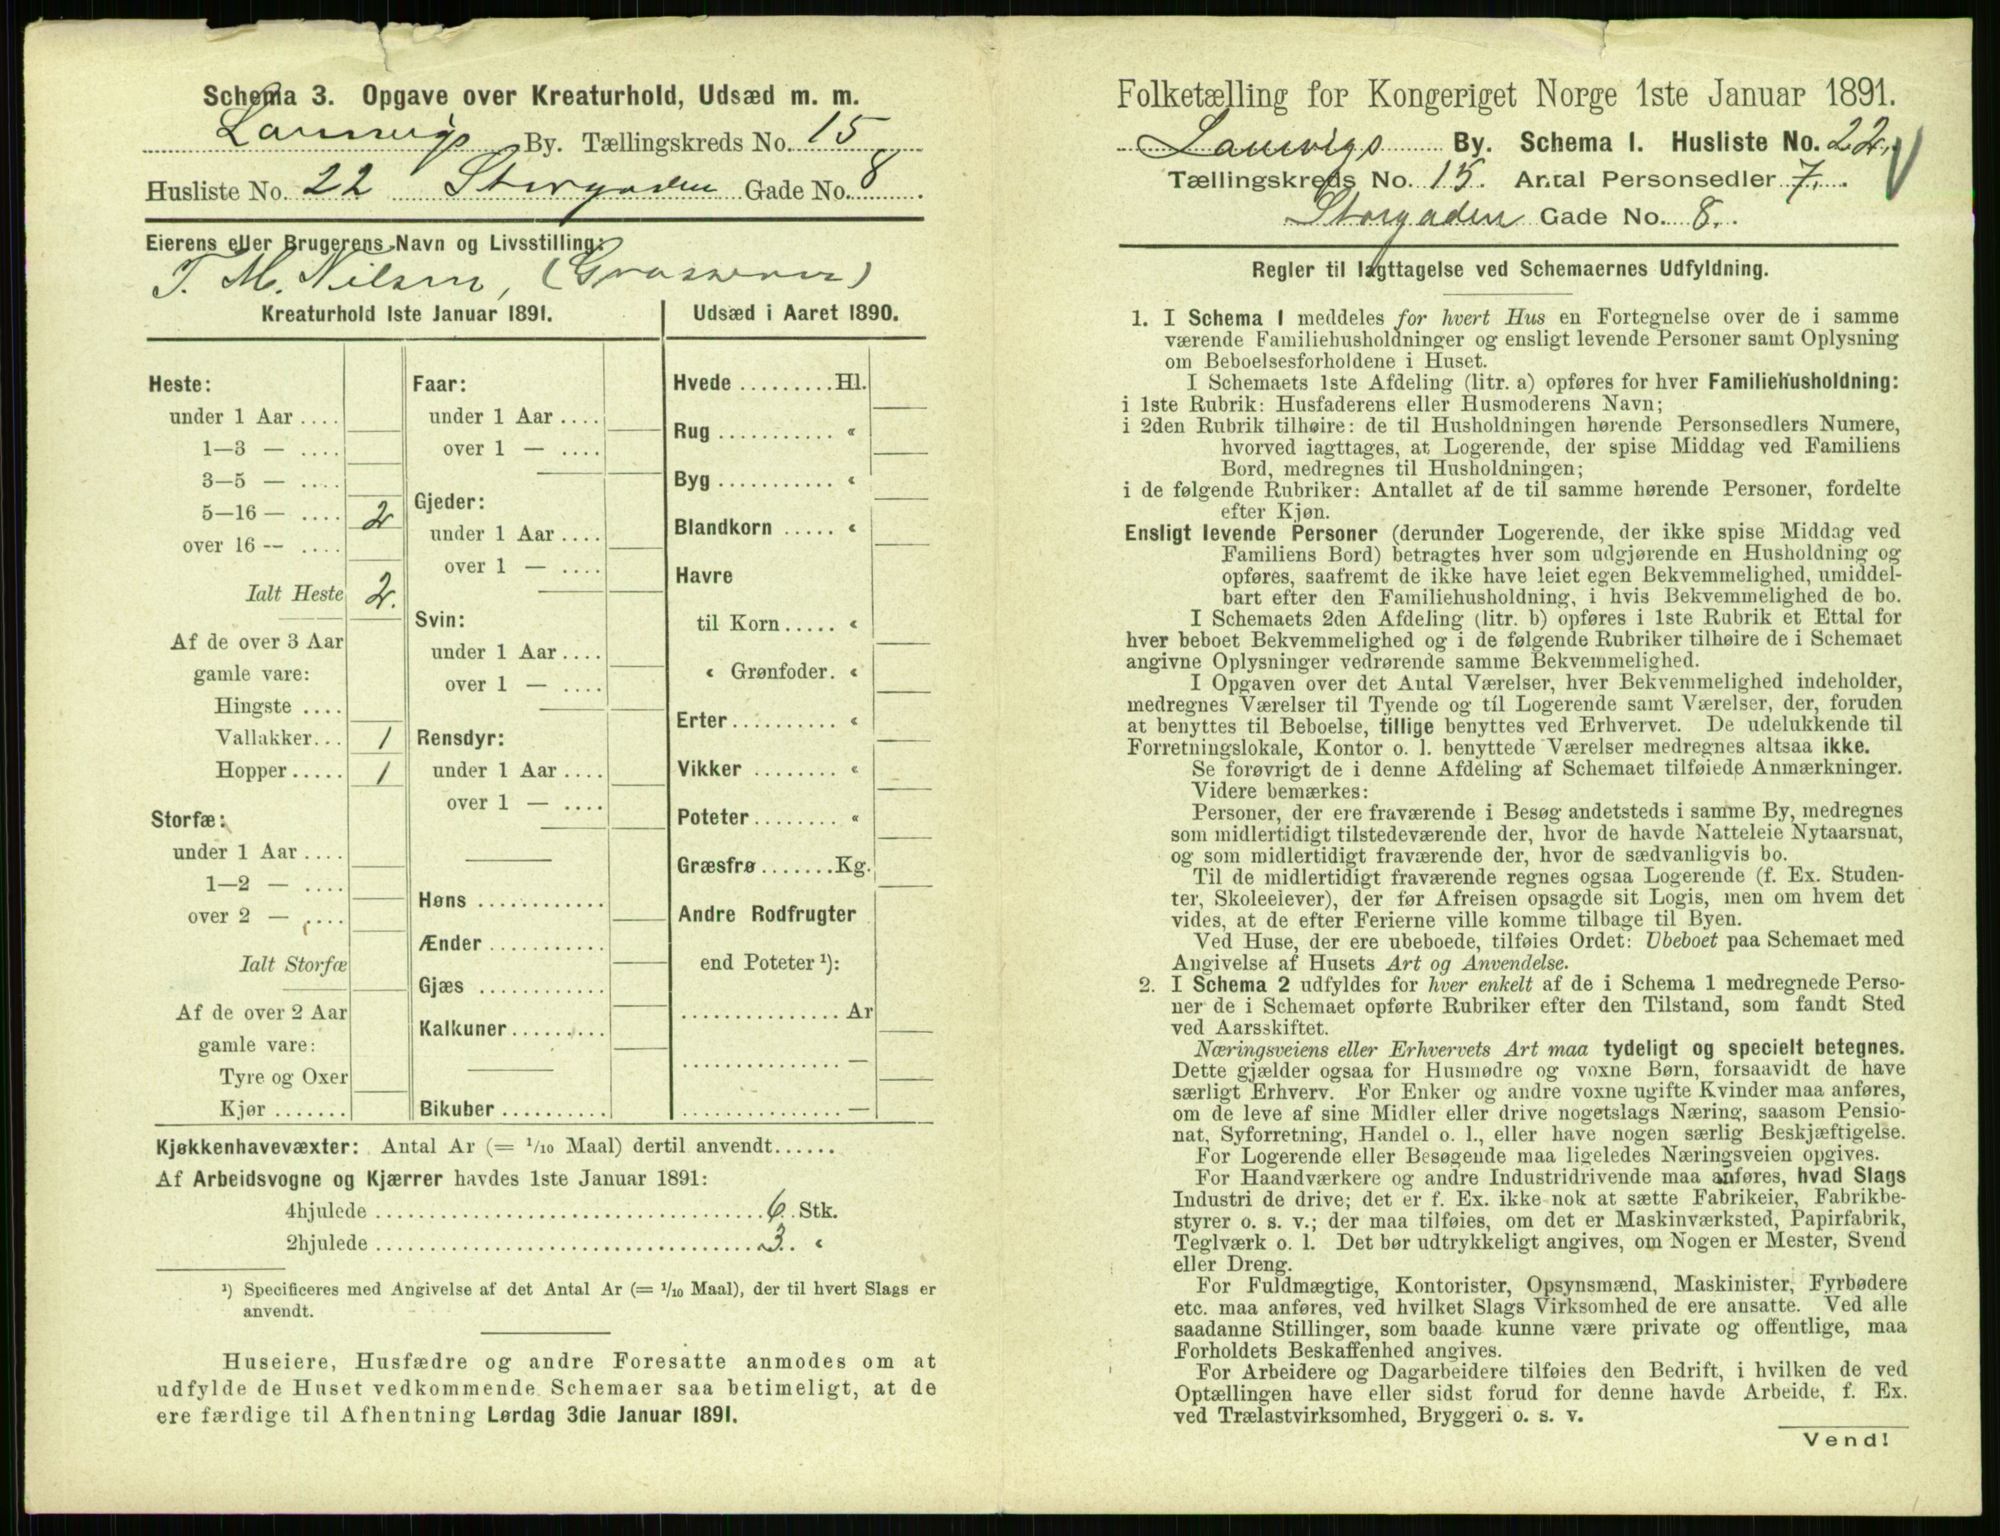 Schema 3. Opgave over Kreaturhold, Udsæd m. m.
Laurvigs By. Tællingskreds No. 15
Husliste No. 22 Storgaden Gade No. 8
Eierens eller Brugerens Navn og Livsstilling:
T. M. Nilsen, (Grosserer)
Kreaturhold 1ste Januar 1891.
Heste:
under 1 Aar ....
1—3 — ....
3—5 — ....
5—16 — .... 2
over 16 -- ....
Ialt Heste 2.
Af de over 3 Aar
gamle vare:
Hingste ....
Vallakker... 1
Hopper..... 1
Storfæ:
under 1 Aar ....
1—2 — ....
over 2 — ....
Ialt Storfæ
Af de over 2 Aar
gamle vare:
Tyre og Oxer
Kjør .......
Faar:
under 1 Aar ....
over 1 — ....
Gjeder:
under 1 Aar ....
over 1 — ....
Svin:
under 1 Aar ....
over 1 — ....
Rensdyr:
under 1 Aar ....
over 1 — ....
Høns ............
Ænder ...........
Gjæs ............
Kalkuner.........
Bikuber ..........
Udsæd i Aaret 1890.
Hvede .........Hl.
Rug ........... «
Byg ........... «
Blandkorn ..... «
Havre
til Korn..... «
« Grønfoder. «
Erter.......... «
Vikker ........ «
Poteter........ «
Græsfrø.......Kg.
Andre Rodfrugter
end Poteter ¹):
............... Ar
............... —
............... —
Kjøkkenhavevæxter: Antal Ar (= 1/10 Maal) dertil anvendt......
Af Arbeidsvogne og Kjærrer havdes 1ste Januar 1891:
4hjulede ..................................... 6. Stk.
2hjulede ..................................... 3. «
¹) Specificeres med Angivelse af det Antal Ar (= 1/10 Maal), der til hvert Slags er
anvendt.
Huseiere, Husfædre og andre Foresatte anmodes om at
udfylde de Huset vedkommende Schemaer saa betimeligt, at de
ere færdige til Afhentning Lørdag 3die Januar 1891.
Folketælling for Kongeriget Norge 1ste Januar 1891.
Laurvigs By. Schema I. Husliste No. 22.
Tællingskreds No. 15. Antal Personsedler 7.
Storgaden Gade No. 8.
Regler til Iagttagelse ved Schemaernes Udfyldning.
1. I Schema I meddeles for hvert Hus en Fortegnelse over de i samme
værende Familiehusholdninger og ensligt levende Personer samt Oplysning
om Beboelsesforholdene i Huset.
I Schemaets 1ste Afdeling (litr. a) opføres for hver Familiehusholdning:
i 1ste Rubrik: Husfaderens eller Husmoderens Navn;
i 2den Rubrik tilhøire: de til Husholdningen hørende Personsedlers Numere,
hvorved iagttages, at Logerende, der spise Middag ved Familiens
Bord, medregnes til Husholdningen;
i de følgende Rubriker: Antallet af de til samme hørende Personer, fordelte
efter Kjøn.
Ensligt levende Personer (derunder Logerende, der ikke spise Middag ved
Familiens Bord) betragtes hver som udgjørende en Husholdning og
opføres, saafremt de ikke have leiet egen Bekvemmelighed, umiddel-
bart efter den Familiehusholdning, i hvis Bekvemmelighed de bo.
I Schemaets 2den Afdeling (litr. b) opføres i 1ste Rubrik et Ettal for
hver beboet Bekvemmelighed og i de følgende Rubriker tilhøire de i Schemaet
angivne Oplysninger vedrørende samme Bekvemmelighed.
I Opgaven over det Antal Værelser, hver Bekvemmelighed indeholder,
medregnes Værelser til Tyende og til Logerende samt Værelser, der, foruden
at benyttes til Beboelse, tillige benyttes ved Erhvervet. De udelukkende til
Forretningslokale, Kontor o. l. benyttede Værelser medregnes altsaa ikke.
Se forøvrigt de i denne Afdeling af Schemaet tilføiede Anmærkninger.
Videre bemærkes:
Personer, der ere fraværende i Besøg andetsteds i samme By, medregnes
som midlertidigt tilstedeværende der, hvor de havde Natteleie Nytaarsnat,
og som midlertidigt fraværende der, hvor de sædvanligvis bo.
Til de midlertidigt fraværende regnes ogsaa Logerende (f. Ex. Studen-
ter, Skoleelever), der før Afreisen opsagde sit Logis, men om hvem det
vides, at de efter Ferierne ville komme tilbage til Byen.
Ved Huse, der ere ubeboede, tilføies Ordet: Ubeboet paa Schemaet med
Angivelse af Husets Art og Anvendelse.
2. I Schema 2 udfyldes for hver enkelt af de i Schema 1 medregnede Perso-
ner de i Schemaet opførte Rubriker efter den Tilstand, som fandt Sted
ved Aarsskiftet.
Næringsveiens eller Erhvervets Art maa tydeligt og specielt betegnes.
Dette gjælder ogsaa for Husmødre og voxne Børn, forsaavidt de have
særligt Erhverv. For Enker og andre voxne ugifte Kvinder maa anføres,
om de leve af sine Midler eller drive nogetslags Næring, saasom Pensio-
nat, Syforretning, Handel o. l., eller have nogen særlig Beskjæftigelse.
For Logerende eller Besøgende maa ligeledes Næringsveien opgives.
For Haandværkere og andre Industridrivende maa anføres, hvad Slags
Industri de drive; det er f. Ex. ikke nok at sætte Fabrikeier, Fabrikbe-
styrer o. s. v.; der maa tilføies, om det er Maskinværksted, Papirfabrik,
Teglværk o. l. Det bør udtrykkeligt angives, om Nogen er Mester, Svend
eller Dreng.
For Fuldmægtige, Kontorister, Opsynsmænd, Maskinister, Fyrbødere
etc. maa anføres, ved hvilket Slags Virksomhed de ere ansatte. Ved alle
saadanne Stillinger, som baade kunne være private og offentlige, maa
Forholdets Beskaffenhed angives.
For Arbeidere og Dagarbeidere tilføies den Bedrift, i hvilken de ved
Optællingen have eller sidst forud for denne havde Arbeide, f. Ex.
ved Trælastvirksomhed, Bryggeri o. s. v.
Vend!